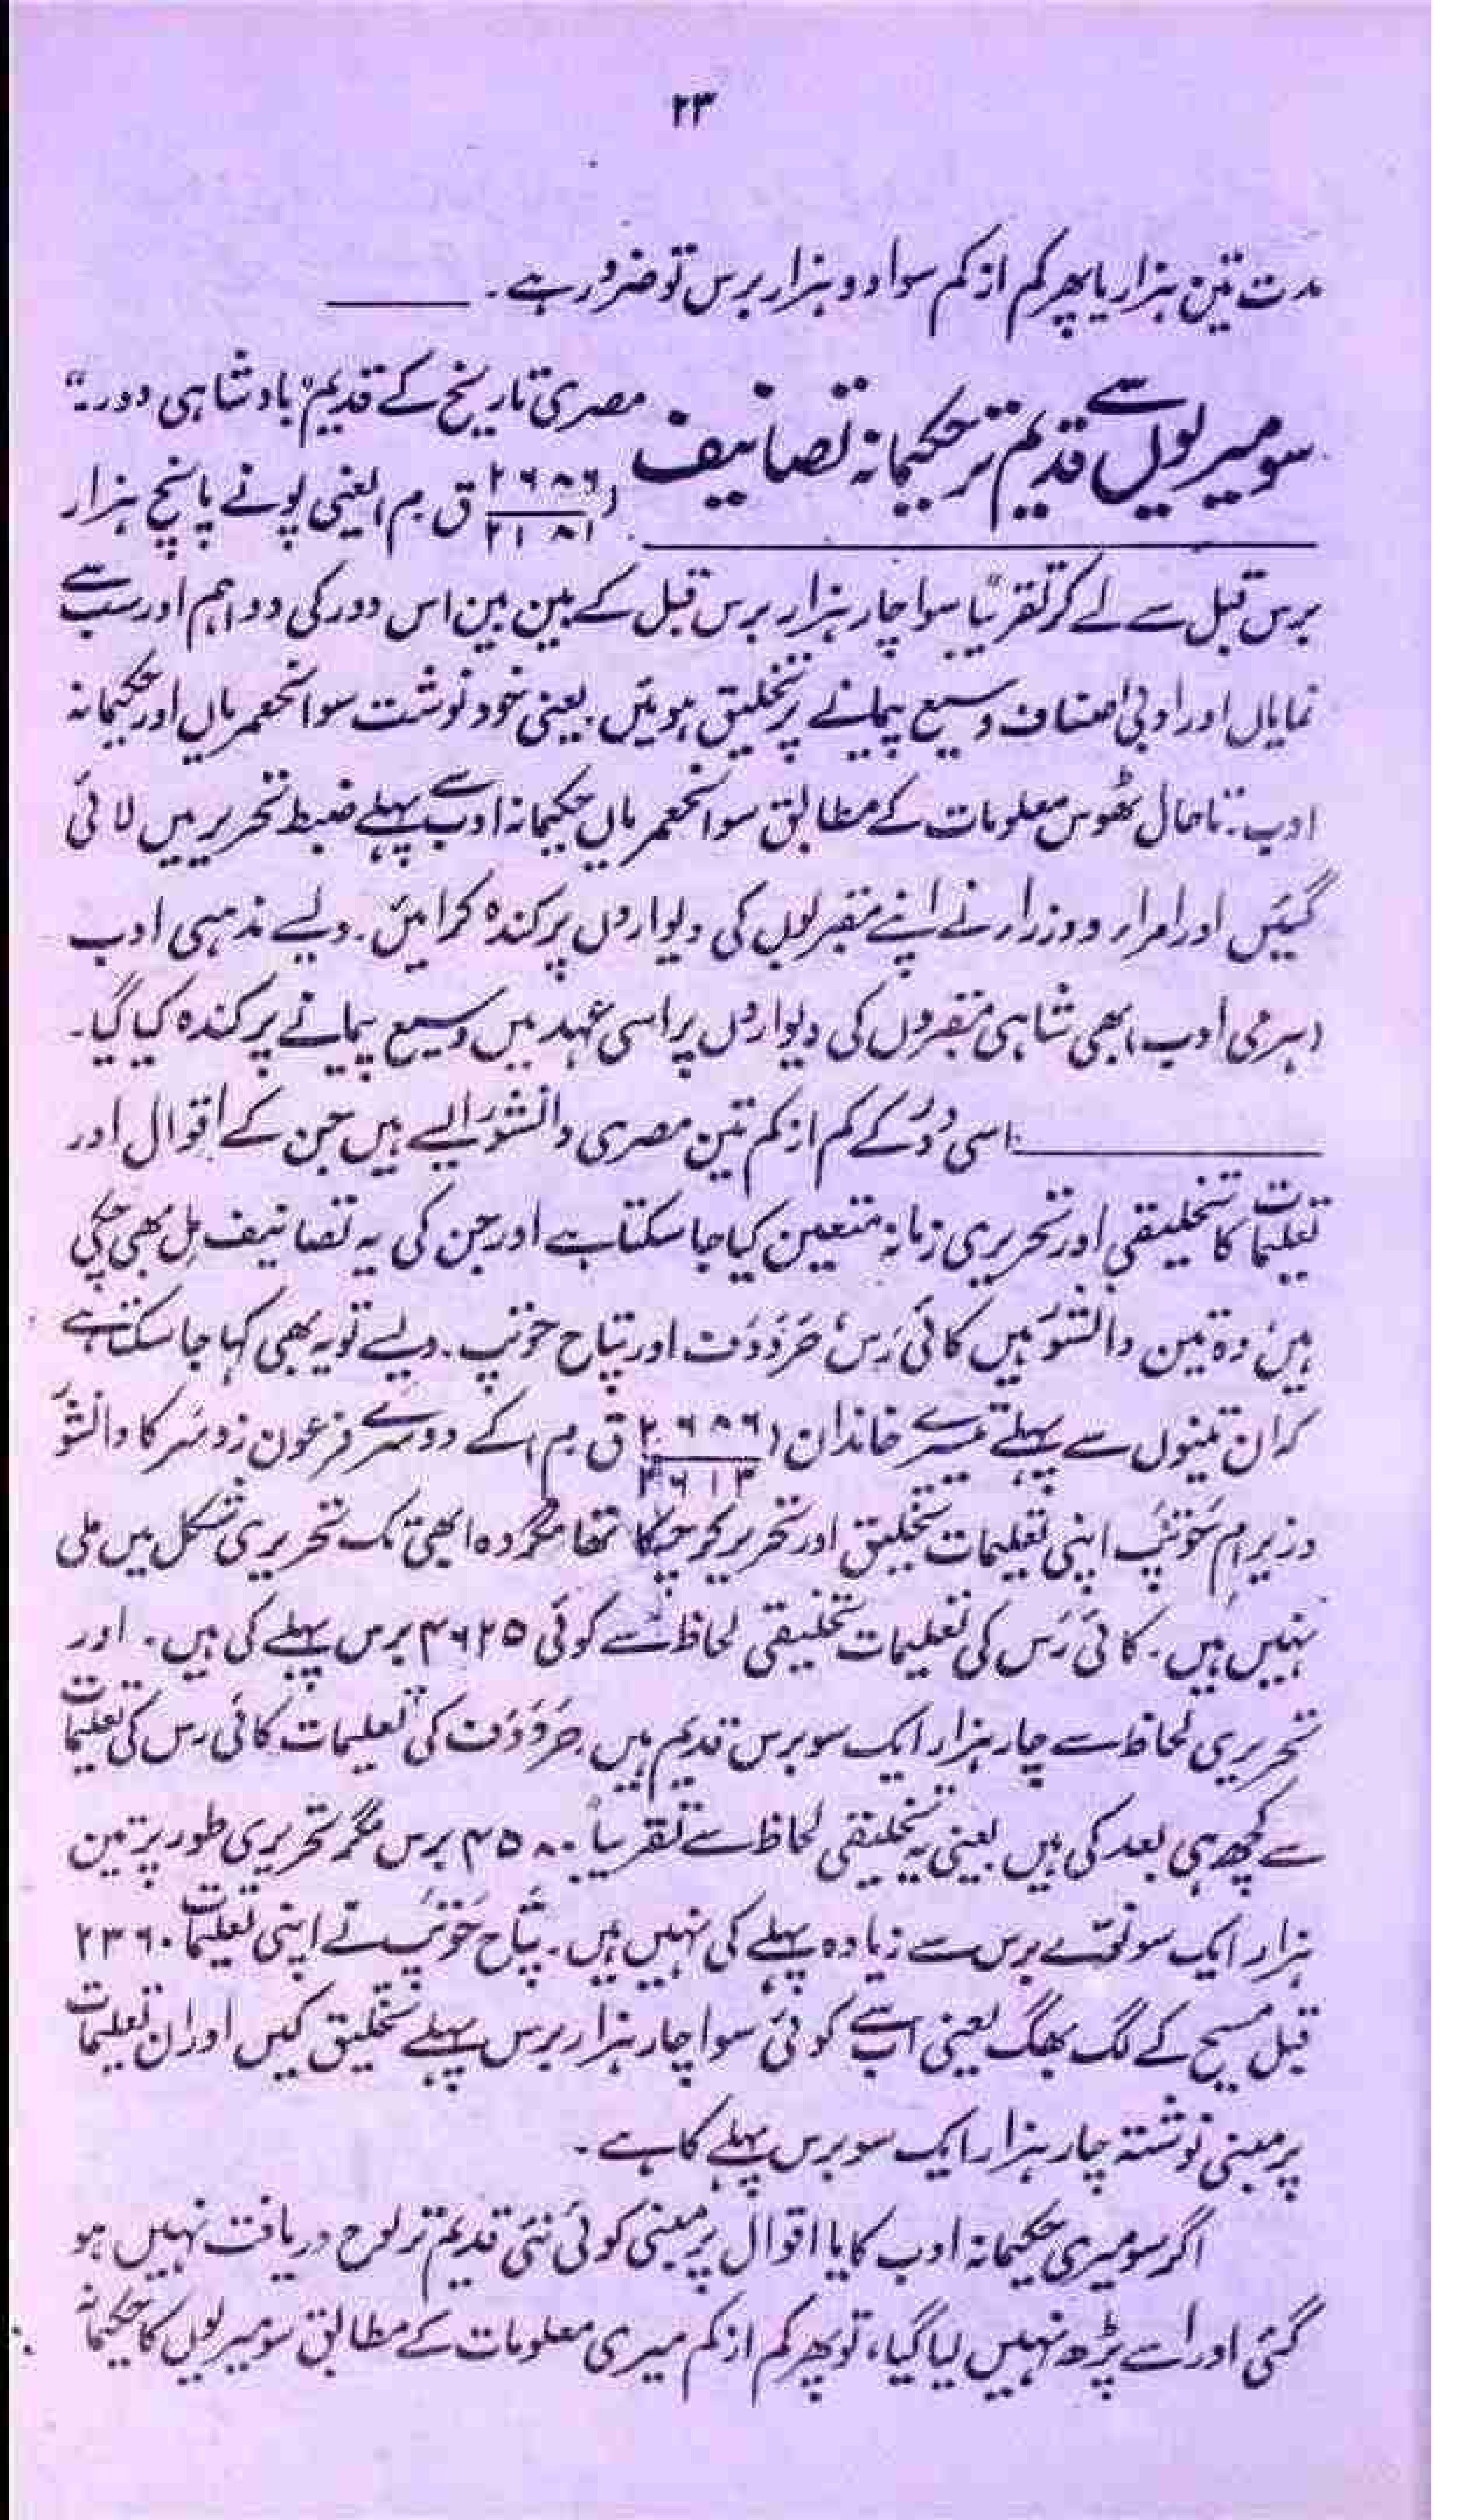 ۲۳
مدت تین ہزار یا پھر کم از کم سوا دو ہزار برس تو ضرور ہے۔
سومیریوں سے قدیم تر حکیمانہ تصانیف
مصری تاریخ کے قدیم "بادشاہی دور۔"
(۲۶۸۶/۲۱۸۱ ق۔م) یعنی پونے پانچ ہزار
برس قبل سے لے کر تقریباً سوا چار ہزار برس قبل کے بین بین اس دور کی دو اہم اور سب سے
نمایاں اور ادبی اصناف وسیع پیمانے پر تخلیق ہوئیں۔ یعنی خود نوشت سوانحعمریاں اور حکیمانہ
ادب۔ تاحال ٹھوس معلومات کے مطابق سوانحعمریاں حکیمانہ ادب سے پہلے ضبط تحریر میں لائی
گئیں اور امراء و وزراء نے اپنے مقبروں کی دیواروں پر کندہ کرائیں۔ ویسے مذہبی ادب
(ہرمی ادب) بھی شاہی مقبروں کی دیواروں پر اسی عہد میں وسیع پیمانے پر کندہ کیا گیا۔
اسی دَور کے کم از کم تین مصری دانشوَر ایسے ہیں جن کے اقوال اور
تعلیمات کا تخلیقی اور تحریری زمانہ متعین کیا جا سکتا ہے اور جن کی یہ تصانیف مِل بھی چکی
ہیں۔ وہ تین دانشوَر ہیں کائی رَس، حَردَدَف اور پتاح حوتپ۔ ویسے تو یہ بھی کہا جا سکتا ہے
کہ ان تینوں سے پہلے تیسرے خاندان (۲۶۸۶/۲۶۱۳ ق۔م) کے دوسرے فرعون زوسَر کا دانشوَر
وزیر اِم حَوتپ اپنی تعلیمات تخلیق اور تحریر کر چکا تھا مگر وہ ابھی تک تحریری شکل میں ملی
نہیں ہیں۔ کائی رَس کی تعلیمات تخلیقی لحاظ سے کوئی ۴۶۲۵ برس پہلے کی ہیں۔ اور
تحریری لحاظ سے چار ہزار ایک سو برس قدیم ہیں۔ حَردَدَف کی تعلیمات کائی رس کی تعلیمات
سے کچھ ہی بعد کی ہیں یعنی یہ تخلیقی لحاظ سے تقریباً ۴۵۸۰ برس مگر تحریری طور پر تین
ہزار ایک سو نوے برس سے زیادہ پہلے کی نہیں ہیں۔ پتاح حَوتپ نے اپنی تعلیمات ۲۳۶۰
قبل مسیح کے لگ بھگ یعنی اب سے کوئی سوا چار ہزار برس پہلے تخلیق کیں اور ان تعلیمات
پر مبنی نوشتہ چار ہزار ایک سو برس پہلے کا ہے۔
اگر سومیری حکیمانہ ادب کا یا اقوال پر مبنی کوئی نئی قدیم تر لوح دریافت نہیں ہو
گئی اور اسے پڑھ نہیں لیا گیا، تو پھر کم از کم میری معلومات کے مطابق سومیریوں کا حکیمانہ